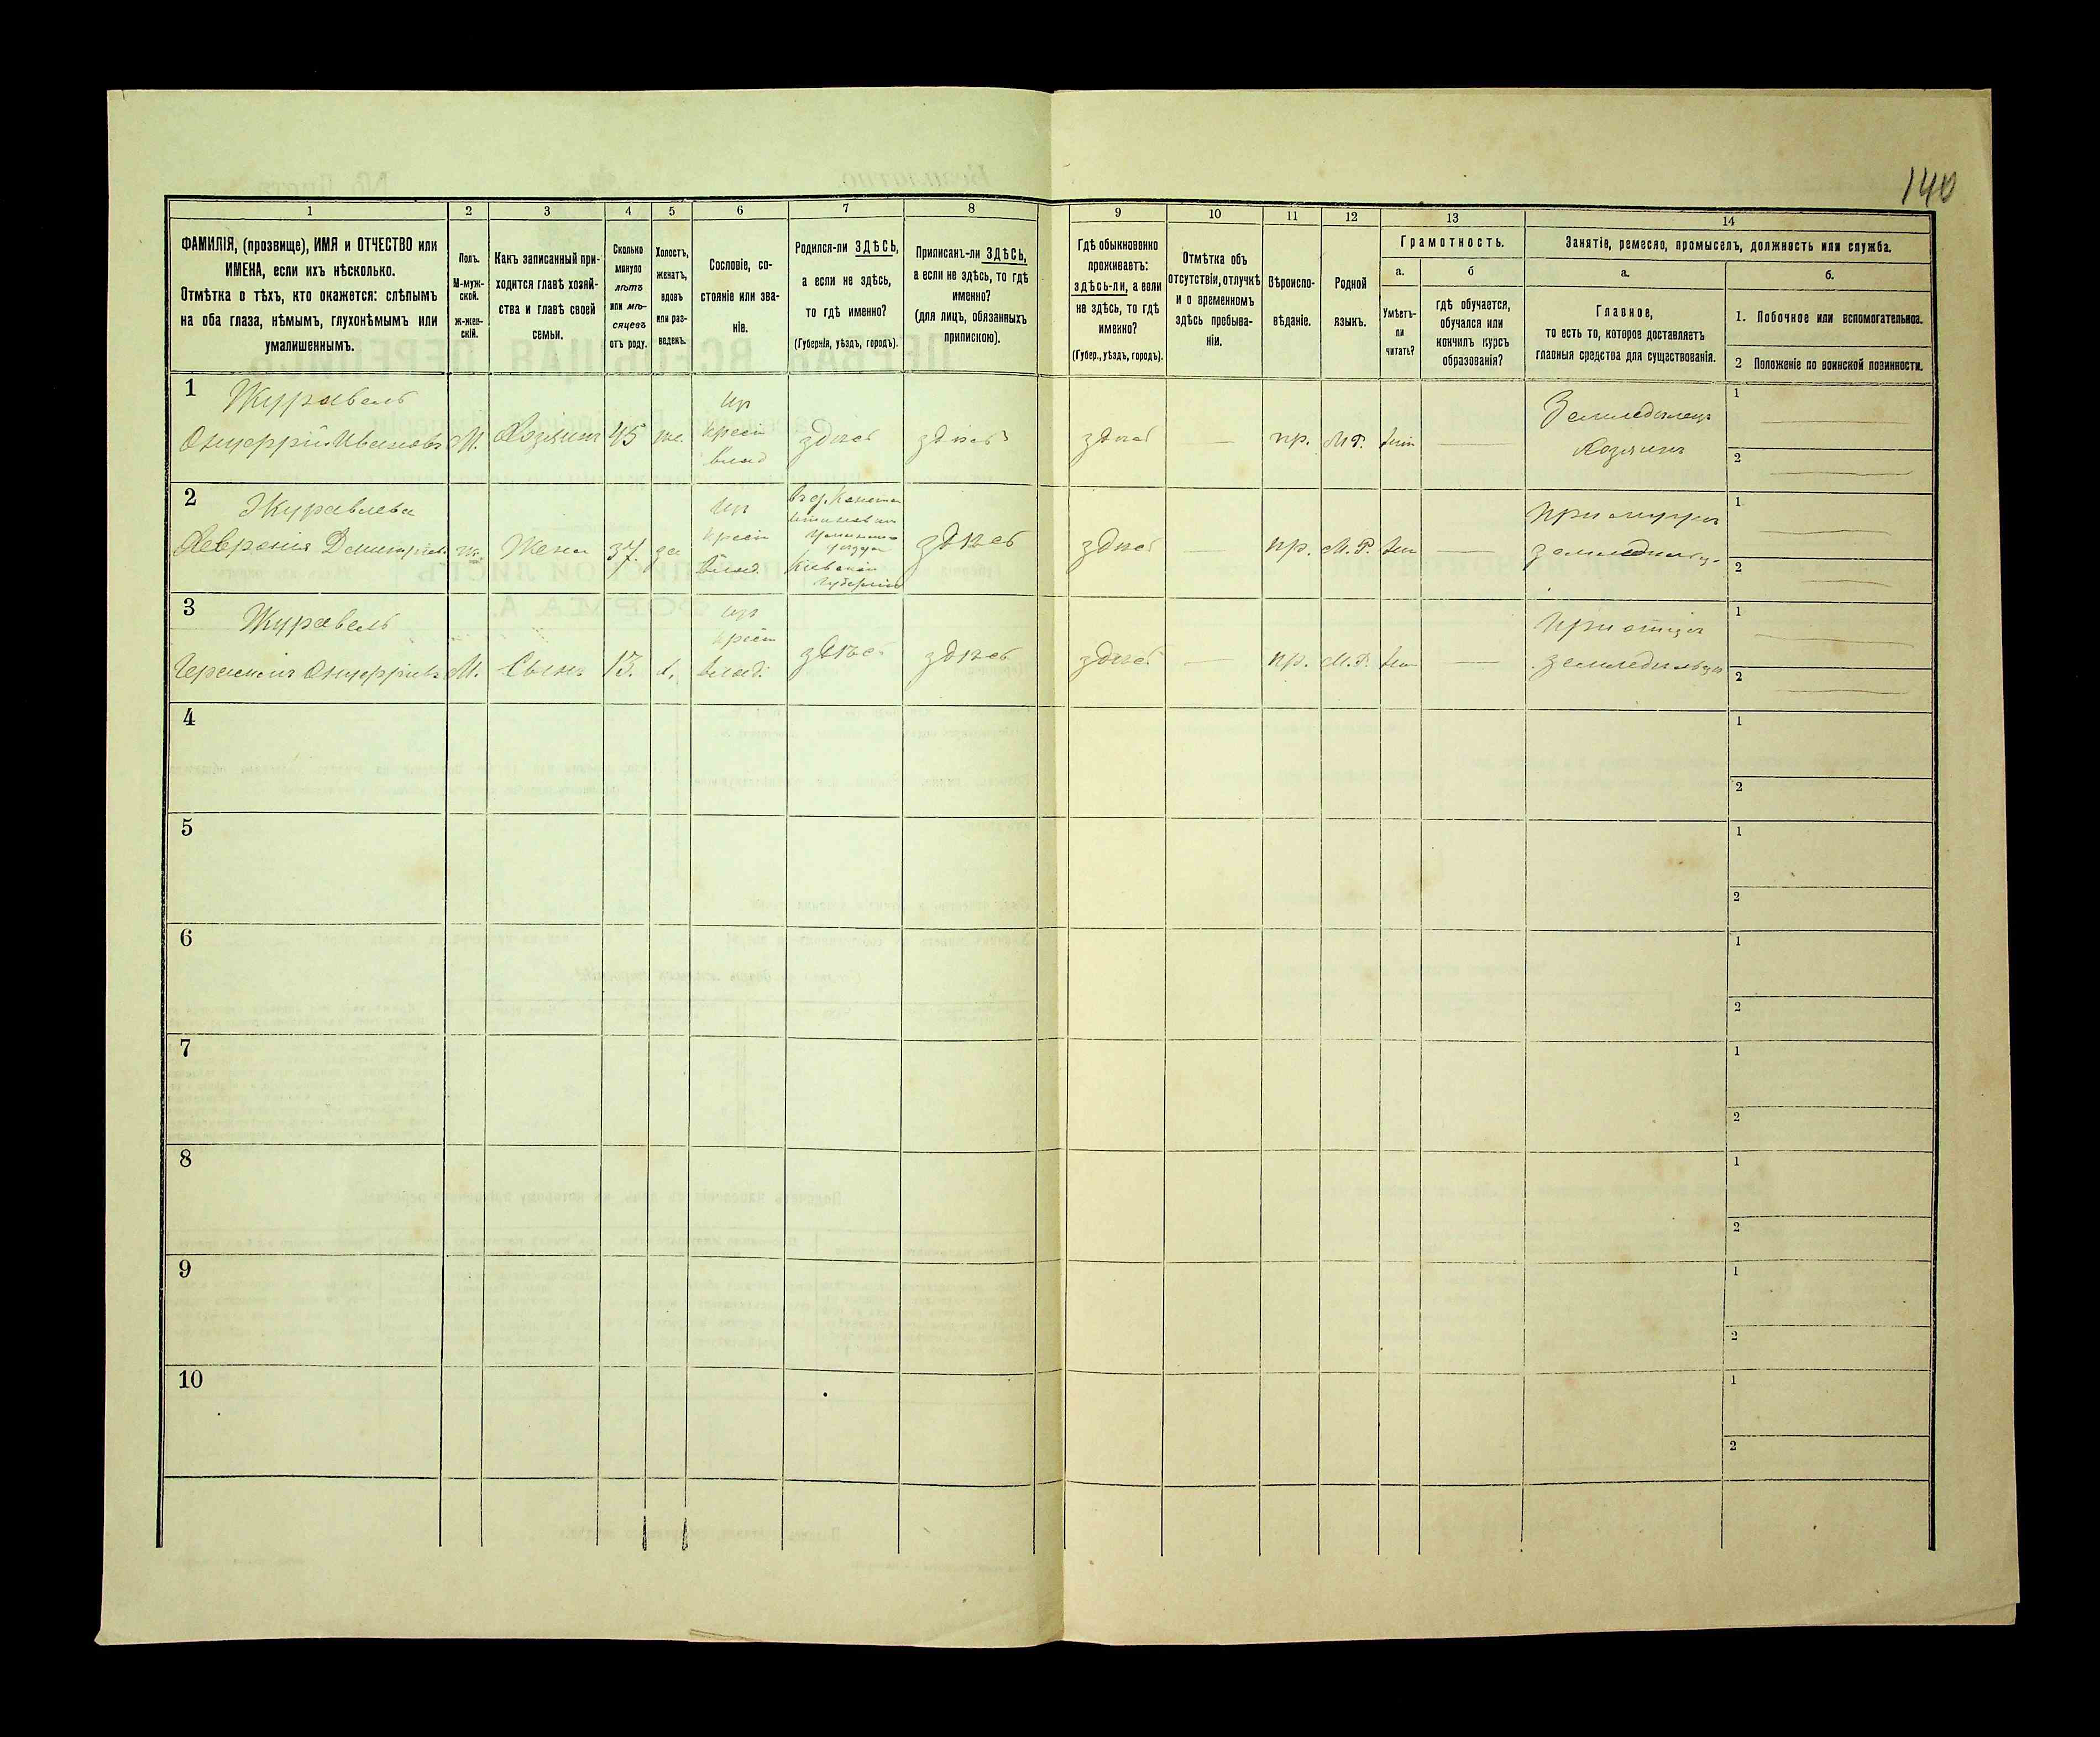 140
1
2
3
4
5
6
7
8
9
10
11
12
13
14
ФАМИЛІЯ, (прозвище), ИМЯ и ОТЧЕСТВО или
ИМЕНА, если ихъ нѣсколько.
Отмѣтка о тѣхъ, кто окажется: слѣпымъ
на оба глаза, нѣмымъ, глухонѣмымъ или
умалишеннымъ.
Полъ.
М-муж-
ской.
ж-жен-
скій.
Какъ записанный при-
ходится главѣ хозяй-
ства и главѣ своей
семьи.
Сколько
минуло
лѣтъ
или мѣ-
сяцевъ
отъ роду.
Холостъ,
женатъ,
вдовъ
или раз-
веденъ.
Сословіе, со-
стояніе или зва-
ніе.
Родился-ли ЗДѢСЬ,
а если не здѣсь,
то гдѣ именно?
(Губернія, уѣздъ, городъ).
Приписанъ-ли ЗДѢСЬ,
а если не здѣсь, то гдѣ
именно?
(для лицъ, обязанныхъ
припискою).
Гдѣ обыкновенно
проживаетъ:
здѣсь-ли, а если
не здѣсь, то гдѣ
именно?
(Губер., уѣздъ, городъ).
Отмѣтка объ
отсутствіи, отлучкѣ
и о временномъ
здѣсь пребыва-
ніи.
Вѣроиспо-
вѣданіе.
Родной
языкъ.
Грамотность.
а.
б
Умѣетъ-
ли
читать?
гдѣ обучается,
обучался или
кончилъ курсъ
образованія?
Занятіе, ремесло, промыселъ, должность или служба.
а.
б.
Главное,
то есть то, которое доставляетъ
главныя средства для существованія.
1. Побочное или вспомогательное.
2 Положеніе по воинской повинности.
1
Журавель
Онуфрій Ивановъ
М.
Хозяинъ
45
же.
из
крест
влад
здѣсь
здѣсь
здѣсь
—
пр.
М.Р.
—
Земледѣлецъ
Хозяинъ
1
2
2
Журавлева
Февронія Димитріев
ж.
Жена
37
за
из
крест
влад.
Кіевской
губерніи
здѣсь
здѣсь
—
пр.
М. Р.
—
При мужѣ
земледѣльцѣ
1
2
3
Журавель
Герасимъ Онуфріевъ
М.
Сынъ
13.
х.
из
крест
влад.
здѣсь
здѣсь
здѣсь
—
пр.
М.Р.
—
При отцѣ
земледѣльцѣ
1
2
4
1
2
5
1
2
6
1
2
7
1
2
8
1
2
9
1
2
10
1
2